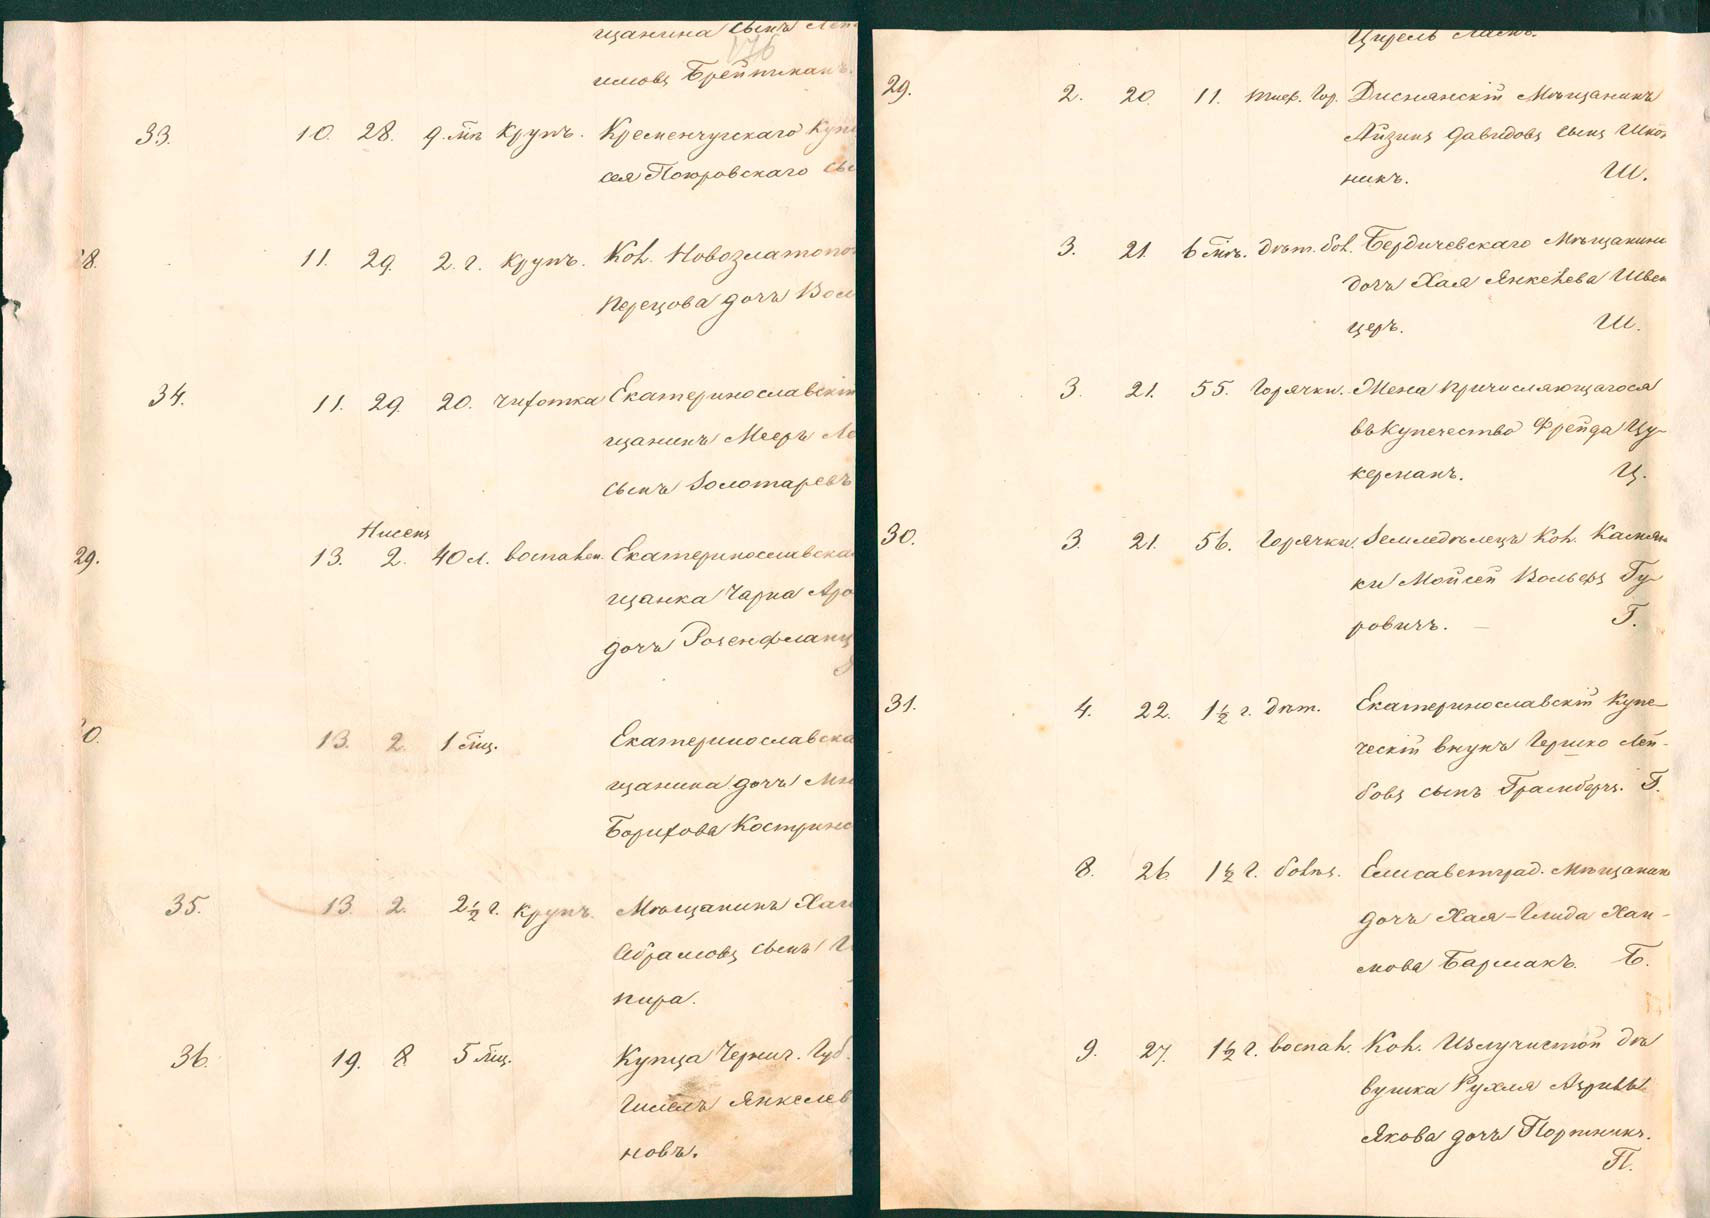 щанина сынъ
176
имовъ Брейтманъ.
33. 10. 28. 9. мц Крупъ. Кременчугскаго Куп
сея Покровскаго сы
8. 11. 29. 2. г. крупъ. Кол. Новозлатопо
Перецова дочь
34. 11. 29. 20. чихотка Екатеринославскій
щанинъ Мееръ Ле
сынъ Золотаревъ
Нисенъ
29. 13. 2. 40 л. воспален. Екатеринославска
щанка Чарна Аро
дочь Розенфланц
0. 13. 2. 1 мѣц. Екатеринославска
щанина дочь
Борухова Кострин
35. 13. 2. 2½ г. крупъ. Мѣщанинъ Хаи
Абрамовъ сынъ
пира.
36. 19. 8 5 мѣц. Купца Черниг. Губ.
Гилелъ Янкелев
новъ.
Цирель
29. 2. 20. 11. тиф. гор. Диснянскій Мѣщанинъ
Айзикъ Давидовъ сынъ Школ
никъ. Ш.
3. 21. 6 мѣс. дѣт. бол. Бердичевскаго Мѣщанина
дочь Хая Янкелева Швей
церъ. Ш.
3. 21. 55. Горячки. Жена причисляющагося
въ купечество Фрейда Цу-
керманъ. Ц.
30. 3. 21. 56. Горячки. Земледѣлецъ Кол. Камян
ки Мойсей Вольфъ Гу-
ровичъ. Г.
31. 4. 22. 1½ г. дѣт. Екатеринославскій Купе-
ческій внукъ Гершко Лей-
бовъ сынъ Грамбергъ. Г.
8. 26. 1½ г. болѣз. Елисаветград. Мѣщанин
дочь Хая-Глида Хаи-
мова Бармакъ. Б.
9. 27. 1½ г. воспал. Кол. Излучистой дѣ
вушка Рухля
Якова дочь Портникъ.
П.